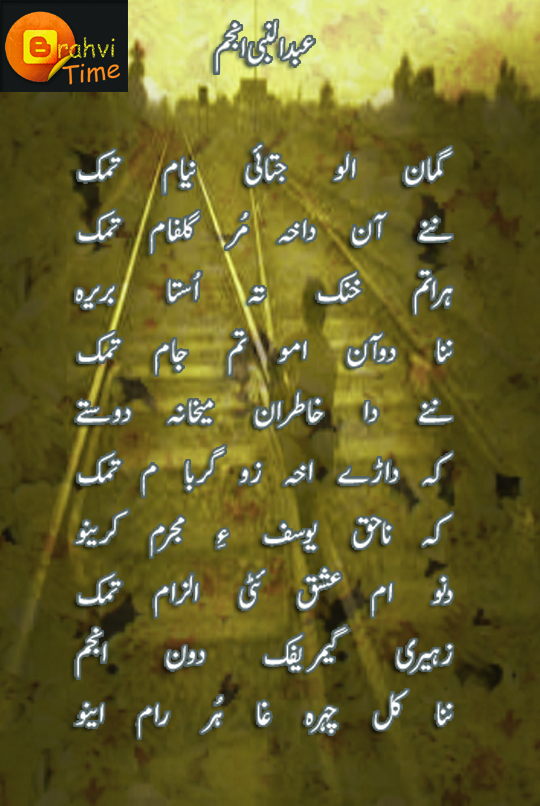 Brahvi
Time
عبدالنبی انجم
گمان الو جتائی نیام تمک
ننے آن داخہ مُر گلفام تمک
ہراتم خنک تہ اُستا بریرہ
ننا دوآن امو تم جام تمک
ننے دا خاطران میخانہ دوستے
کہ داڑے اخہ زو گربا م تمک
کہ ناحق یوسف ءِ مجرم کرینو
دنو ام عشق ئٹی الزام تمک
زہیری گیمریفک دون انجم
ننا کل چہرہ غا ہُر رام اینو